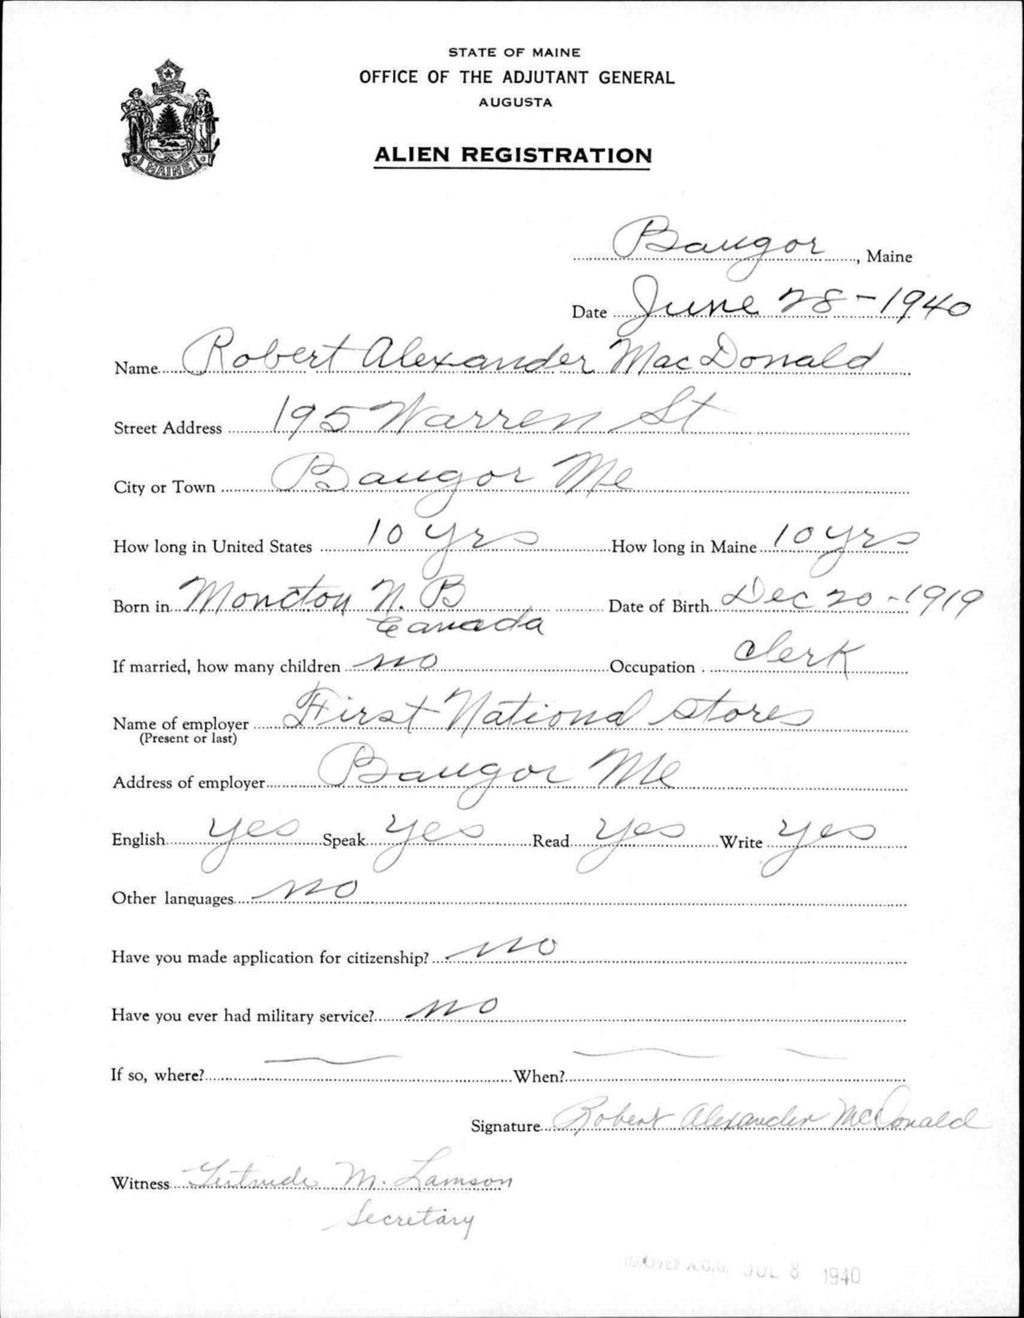 STATE OF MAINE
OFFICE OF THE ADJUTANT GENERAL
AUGUSTA
MAINE
ALIEN REGISTRATION
Bangor, Maine
Date June 28-1940
Name Robert Alexander MacDonald
Street Address 195 Warren St
City or Town Bangor Me
How long in United States 10 yrs How long in Maine 10 yrs
Born in Moncton N. B Date of Birth Dec 20-1919
Canada
If married, how many children no Occupation Clerk
Name of employer First National Stores
(Present or last)
Address of employer Bangor Me
English yes Speak yes Read yes Write yes
Other languages no
Have you made application for citizenship? no
Have you ever had military service? no
If so, where? When?
Signature Robert Alexander McDonald
Witness Gertrude M. Lamson
Secretary
JUL 8 1940